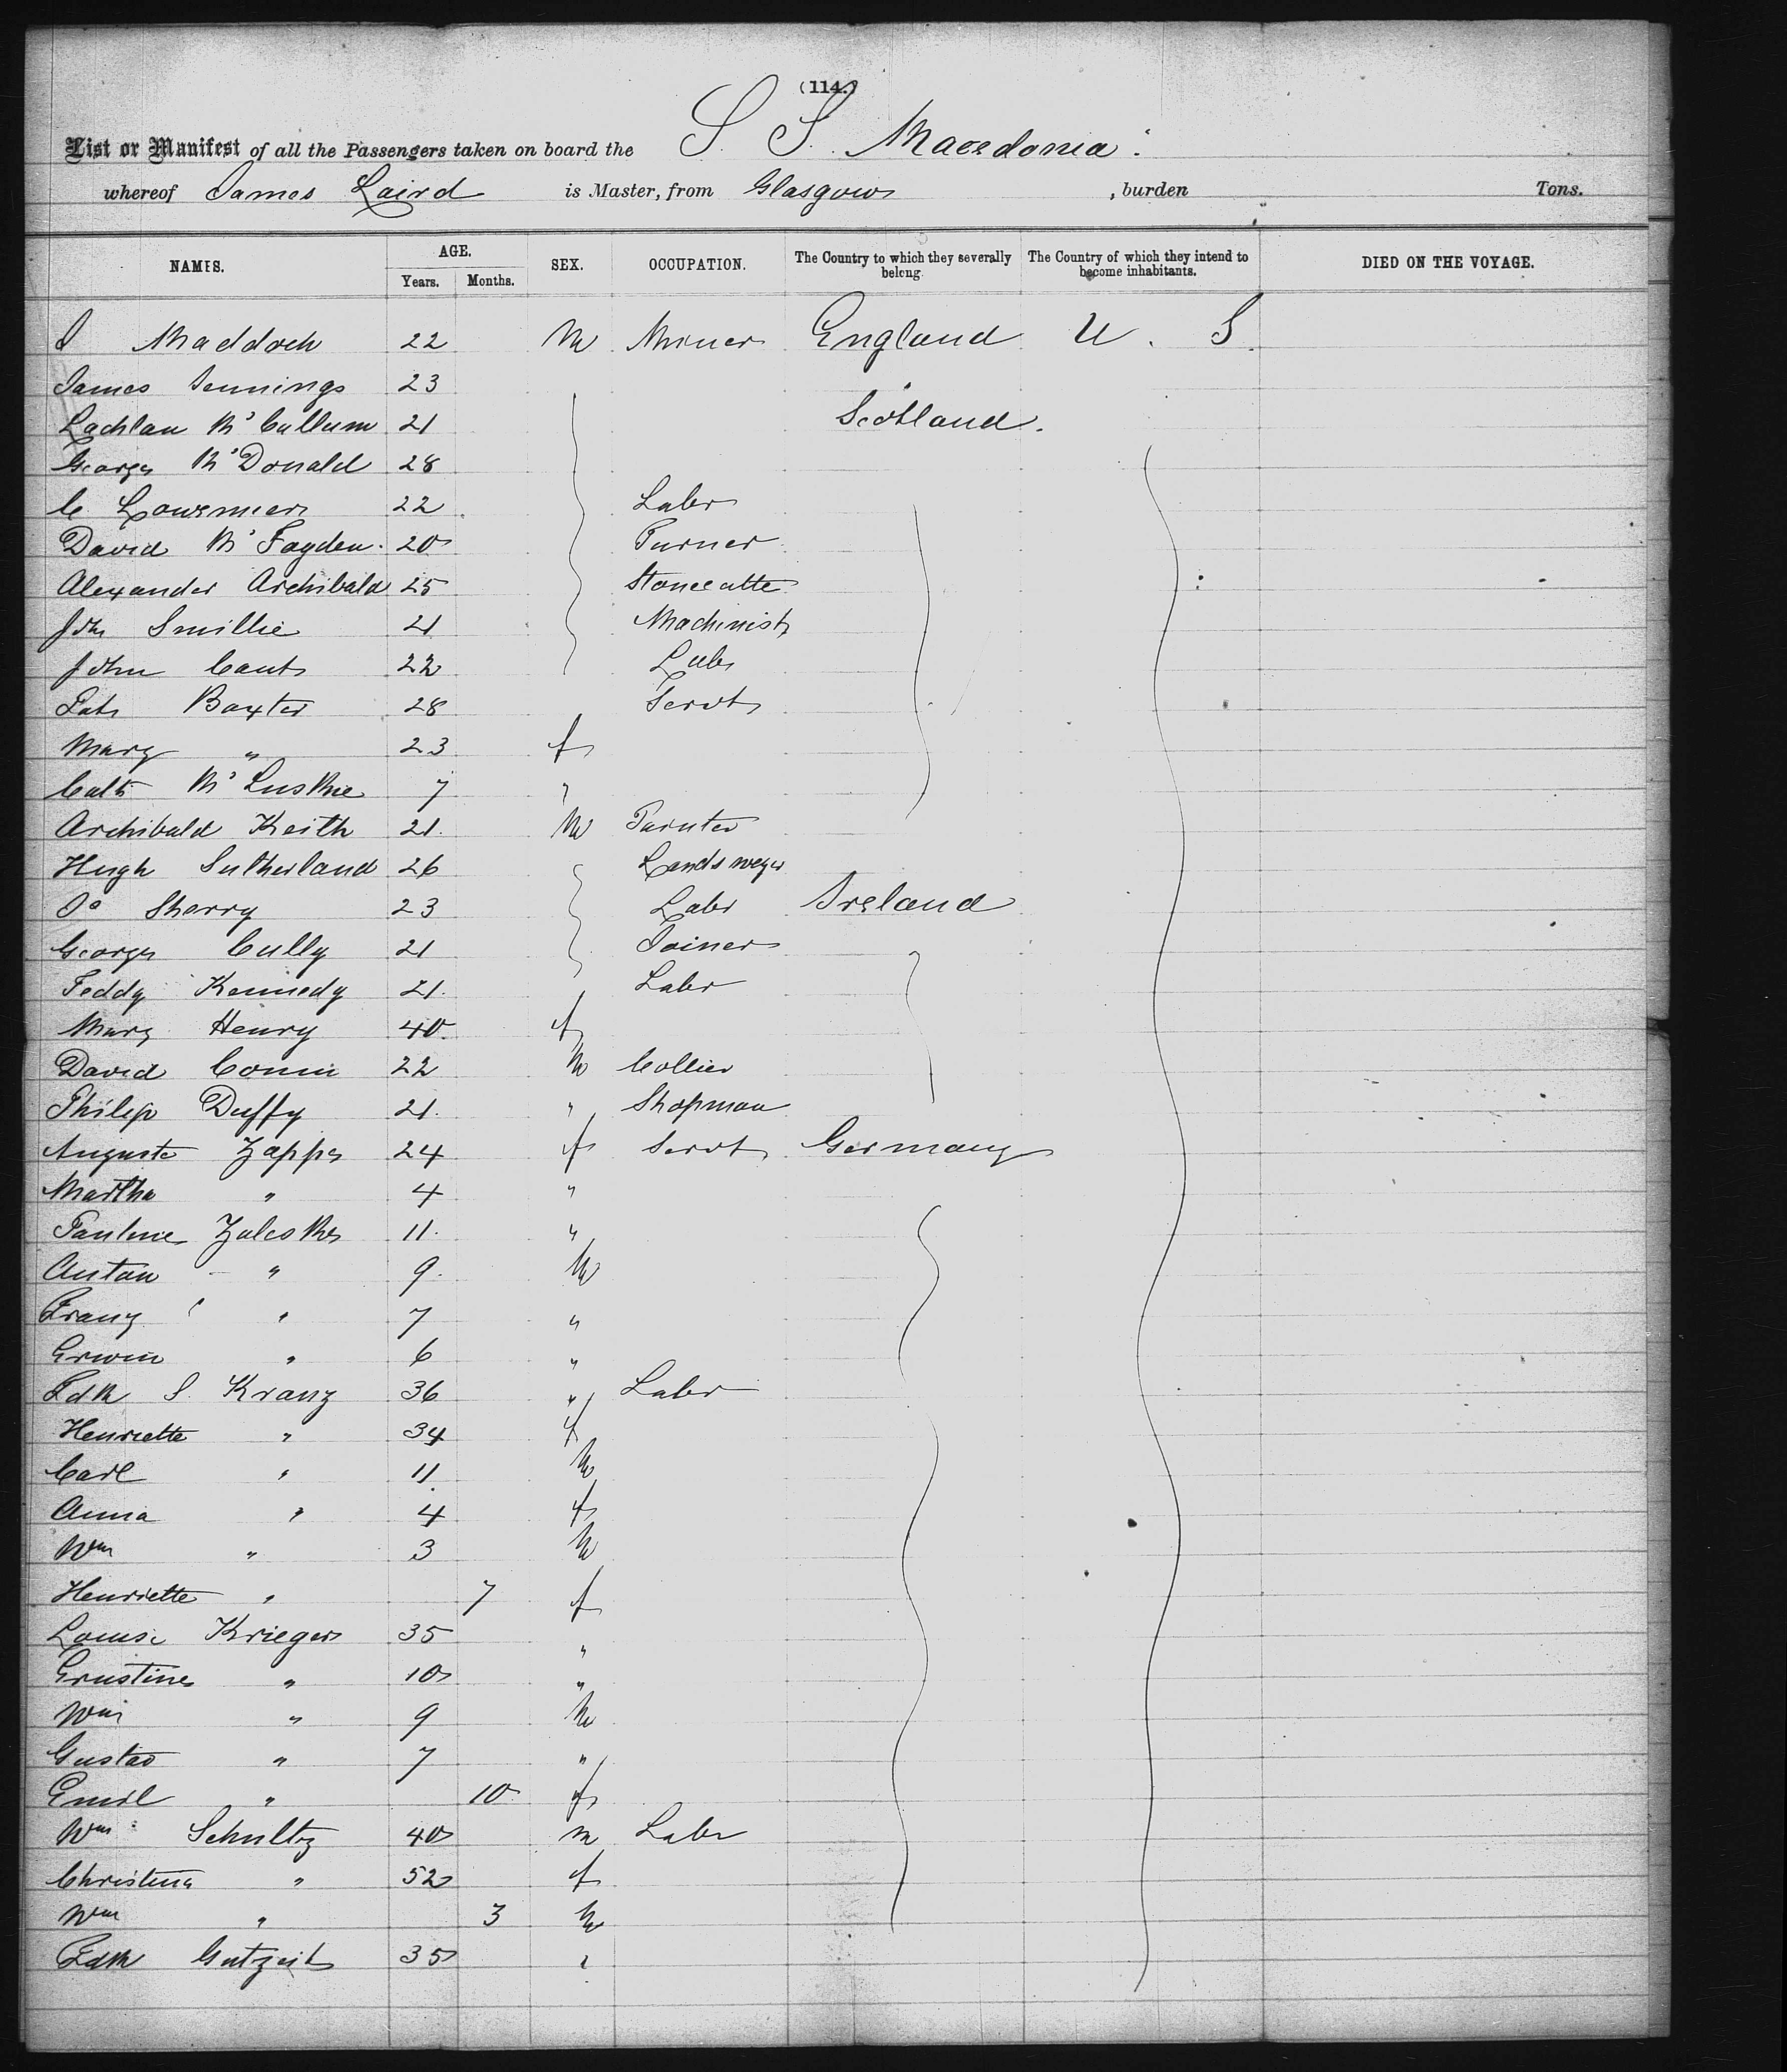 (114.)
List or Manifest of all the Passengers taken on board the S. S. Macedonia.
whereof James Laird is Master, from Glasgow , burden Tons.
NAMES. AGE. SEX. OCCUPATION. The Country to which they severally belong. The Country of which they intend to become inhabitants. DIED ON THE VOYAGE.
Years. Months.
J Maddock 22 M Miner England U. S.
James Jennings 23
Lachlan Mc Callum 21 Scotland.
George Mc Donald 28
C. 22 Labr
David Mc Fayden 20 Turner
Alexander Archibald 25 Stonecutte
John Smillie 21 Machinist
John Cant 22 Labr
Pat Baxter 28 Servt
Mary " 23 f
Cath Mc Luskie 7 "
Archibald Keith 21 M Painter
Hugh Sutherland 26
Jas Sherry 23 Labr Ireland
George Cully 21 Joiner
Teddy Kennedy 21 Labr
Mary Henry 40 f
David 22 M Collier
Philip Duffy 21 " Shopman
Auguste Zappe 24 f Servt Germany
Martha " 4 "
Pauline Zaleske 11 "
Anton " 9 M
Franz " 7 "
Erwin " 6 "
Fdk S. Kranz 36 " Labr
Henriette " 34 f
Carl " 11 M
Anna " 4 f
Wm " 3 M
Henriette " 7 f
Louise Krieger 35 "
Ernstine " 10 "
Wm " 9 M
Gustav " 7 "
Emil " 10 f
Wm Schultz 40 m Labr
Christina " 52 f
Wm " 3 M
Fdk Gutzeit 35 "